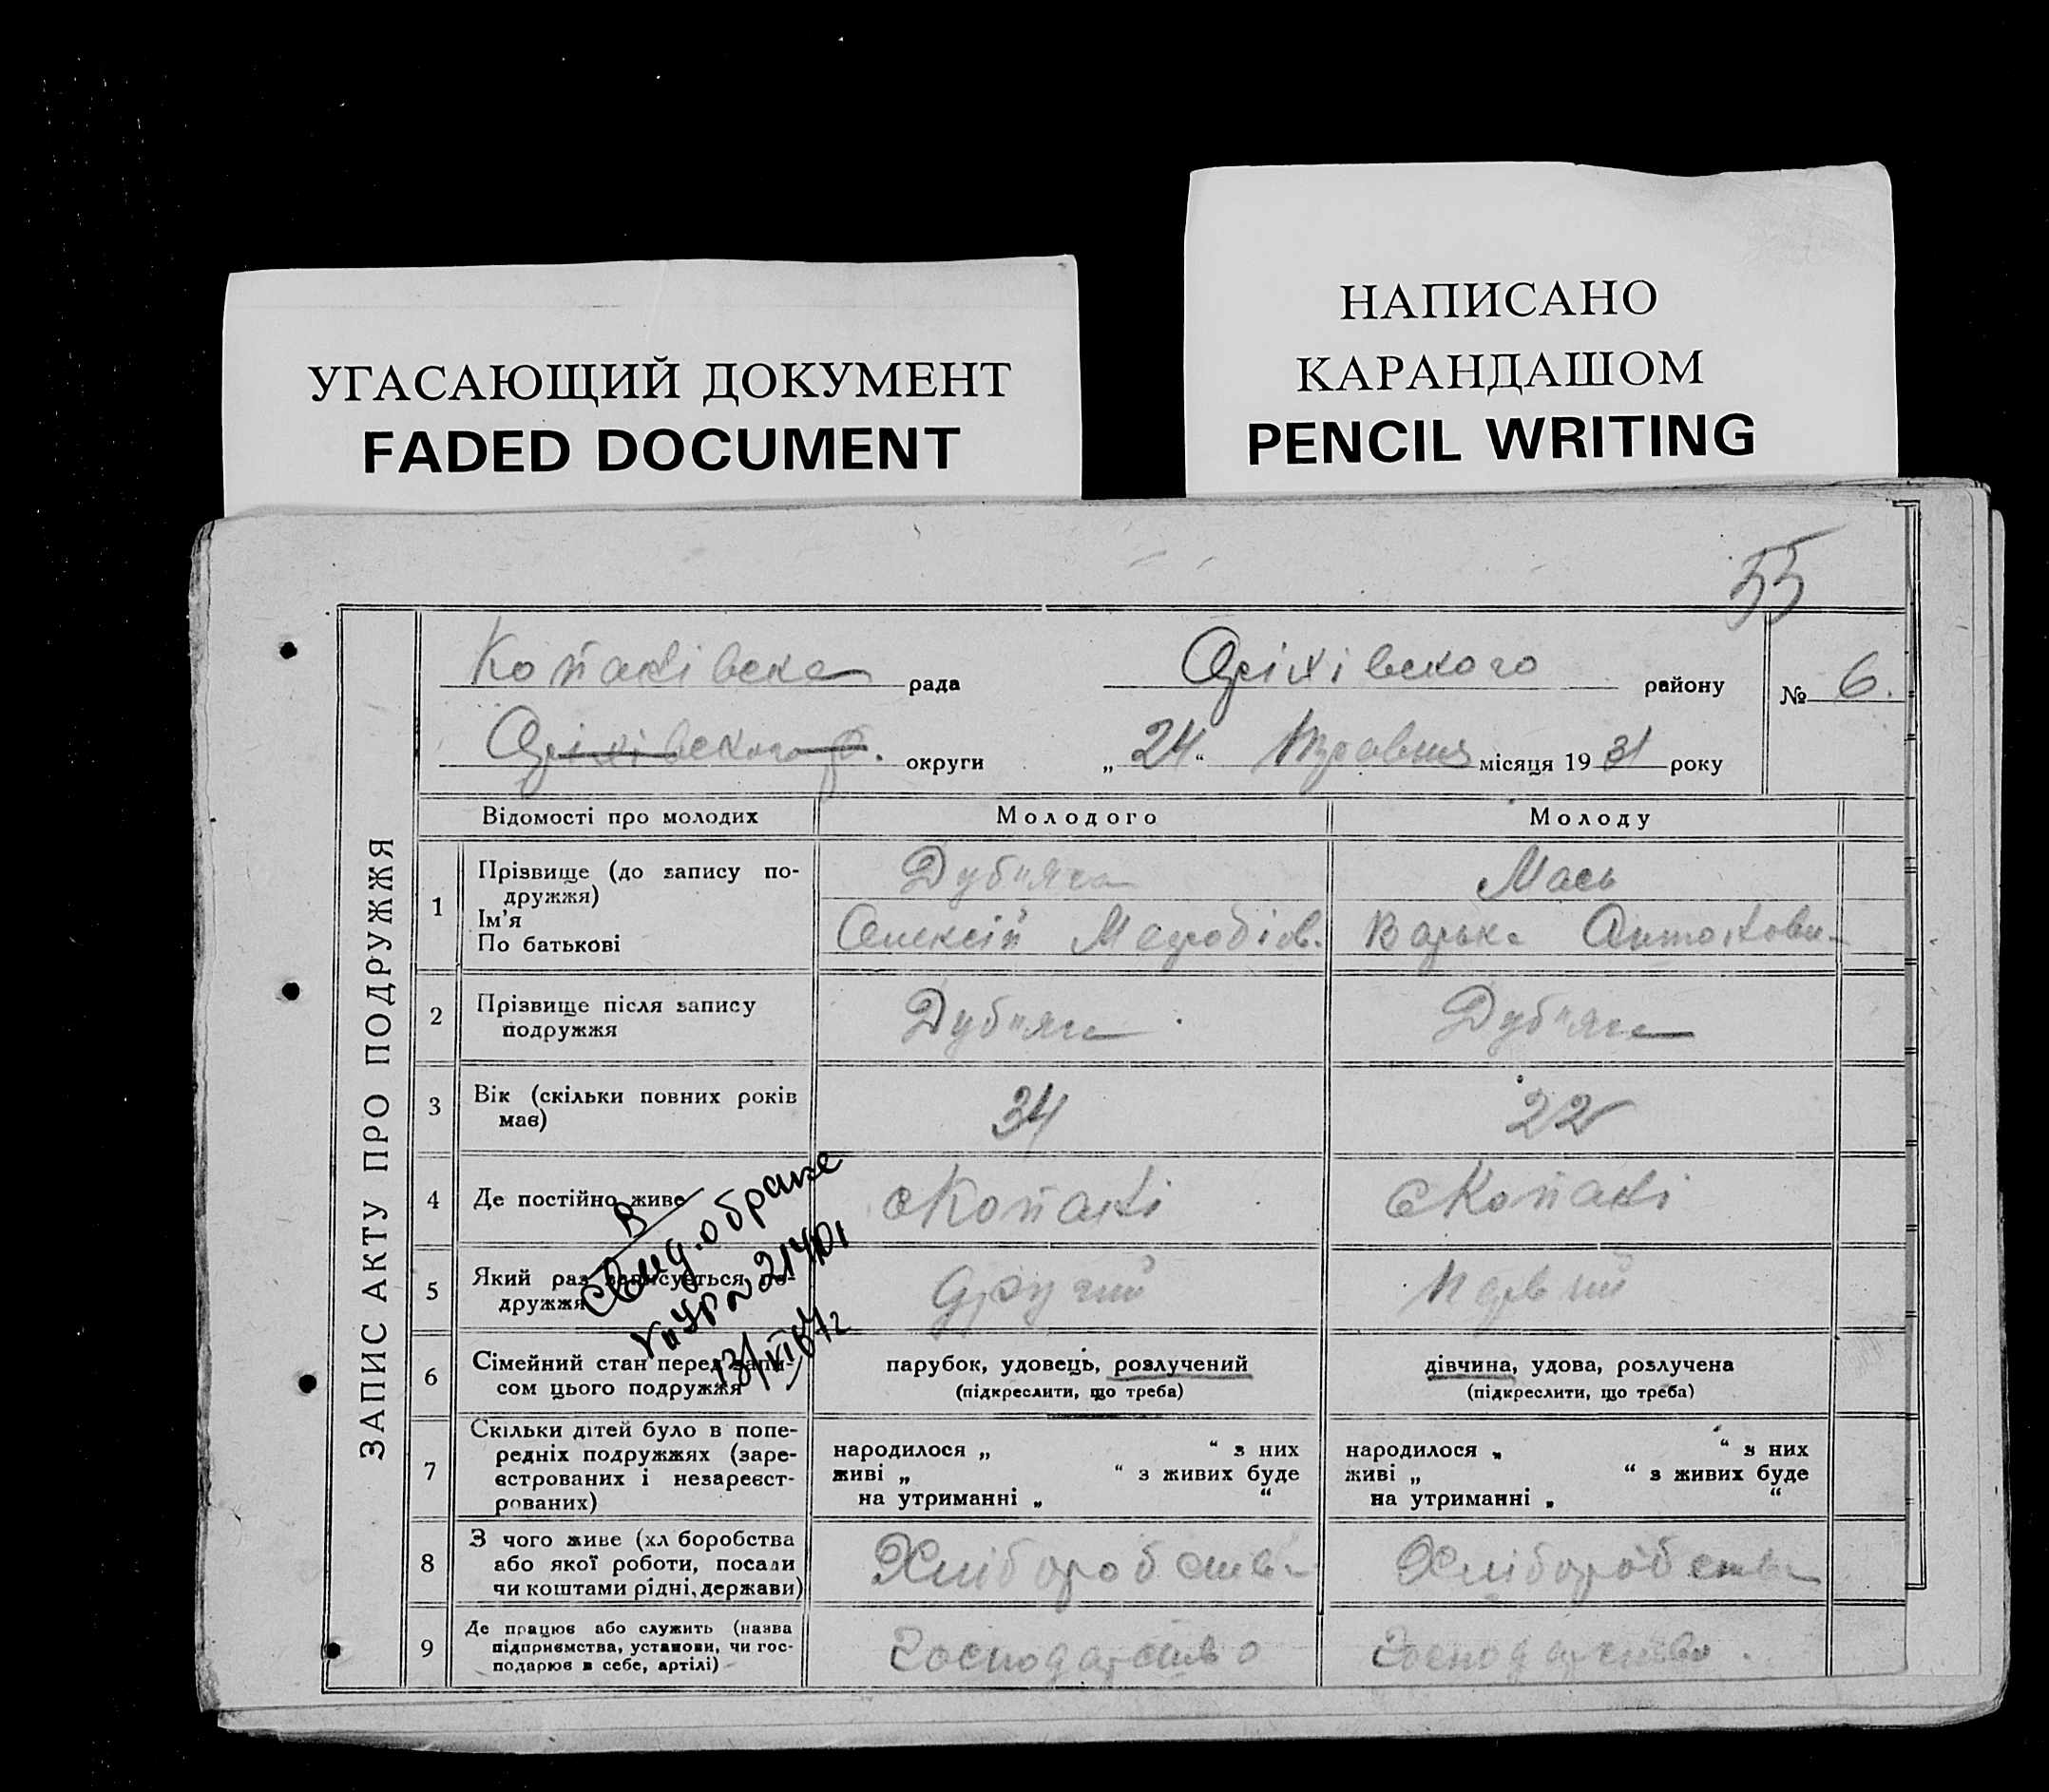 УГАСАЮЩИЙ ДОКУМЕНТ
FADED DOCUMENT
НАПИСАНО
КАРАНДАШОМ
PENCIL WRITING
55
ЗАПИС АКТУ ПРО ПОДРУЖЖЯ
Копаківська рада Оріхівского району № 6.
Оріхівского р. округи „ 24 “ Травня місяця 19 31 року
Відомості про молодих Молодого Молоду
1 Прізвище (до запису по-
дружжя)
Ім’я
По батькові
Дуб"яга Мась
Олексій Мефодіов. Варька Антонови-
2 Прізвище після запису
подружжя
Дуб"яга Дуб"яга
3 Вік (скільки повних років
має)
34 22
4 Де постійно живе
с Копакі с Копакі
5 Який раз записується по-
дружжя
Другий Первий
6 Сімейний стан перед запи-
сом цього подружжя
парубок, удовець, розлучений дівчина, удова, розлучена
(підкреслити, що треба) (підкреслити, що треба)
7 Скільки дітей було в попе-
редніх подружжях (заре-
єстрованих і незареєст-
рованих)
народилося „ “ з них народилося „ “ з них
живі „ “ з живих буде живі „ “ з живих буде
на утриманні „ “ на утриманні „ “
8 З чого живе (хл боробства
або якої роботи, посади
чи коштами рідні, держави)
Хліборобства Хліборобства
9 Де працює або служить (назва
підприємства, установи, чи гос-
подарює в себе, артілі)
Господарство Господарство.
о браке